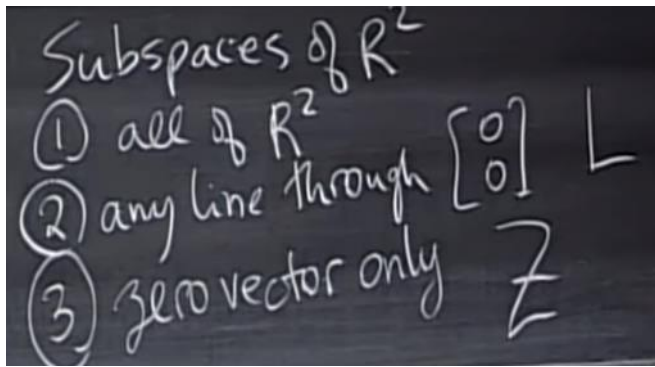 Subspaces of R²
① all of R²
② any line through [0 0] L
③ zero vector only Z